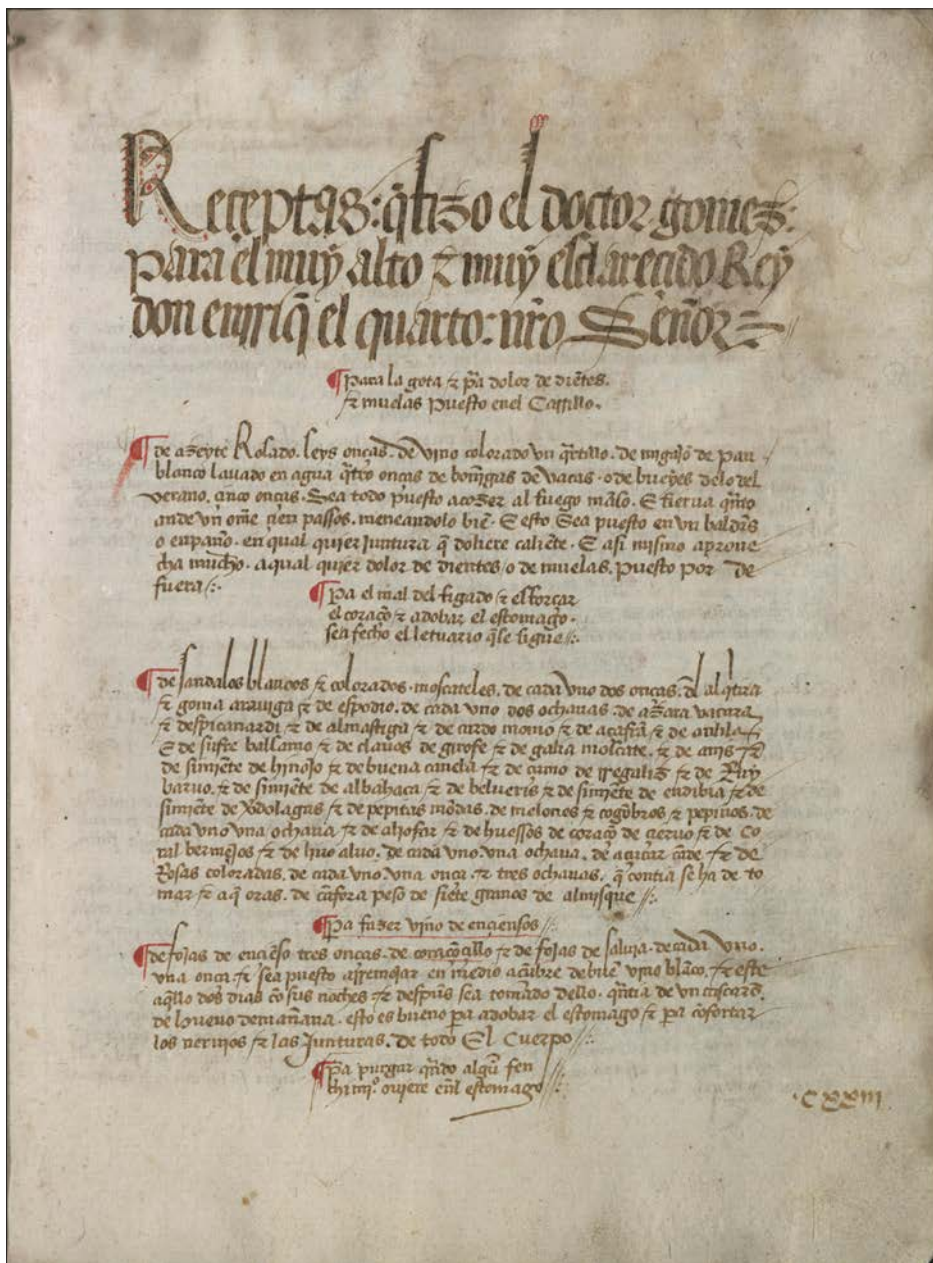 Receptas: q̃ fizo el doctor gomez:
para el muy alto ⁊ muy esclarecido Rey
don enrriq̃ el quarto: nr̃o Señor
¶ para la gota ⁊ pa dolor de dientes.
⁊ muelas puesto enel Carrillo.
¶ de azeyte Rosado. seys onças. de vino colorado vn q̃rtillo. de migajõ de pan
blanco lauado en agua q̃tro onças de boñigas de vacas. o de bueyes delo del
verano. çinco onças. Sea todo puesto a cozer al fuego mãso. E fierua q̃nto
ande vn om̃e çien passos. meneandolo biẽ. E esto Sea puesto en vn baldr̃s
o en paño. en qual quier Juntura q̃ doliere caliẽte. E asi mismo aproue
cha mucho. a qual quier dolor de dientes / o de muelas. puesto por de
fuera
¶ Pa el mal del figado ⁊ esforçar
el coraçõ ⁊ adobar el estomago.
sea fecho el letuario q̃ se sigue
¶ de sandalos blancos ⁊ colorados. moscateles. de cada vno dos onças. del alq̃tira
⁊ goma arauiga ⁊ de espodio. de cada vno dos ochauas. de azara
⁊ despicanardi ⁊ de almastiga ⁊ de cardo momo ⁊ de açafrã ⁊ de
E de sufre ballamo ⁊ de clauos de girofe ⁊ de galia moscate. ⁊ de anis ⁊
de simiẽte de hinojo ⁊ de buena canela ⁊ de çumo de rregaliz ⁊ de Ruy
baruo. ⁊ de simiẽte de albahaca ⁊ de belueris ⁊ de simiẽte de endibia ⁊ de
simiẽte de Vdolagas ⁊ de pepitas mõdas. de melones ⁊ cogõbros ⁊ pepinos. de
cada vno vna ochaua ⁊ de aljofar ⁊ de huessos de coraçõ de çieruo ⁊ de Co
ral bermejos ⁊ de liño aluo. de cada vno vna ochaua. de açucar cãde ⁊ de
Rosas coloradas. de cada vno vna onça ⁊ tres ochauas. q̃ contia se ha de to
mar ⁊ a q̃ oras. de cãfora peso de siete granos de almisque
¶ Pa fazer vino de ençiensos
¶ de fojas de ençiẽso tres onças. de coraçõçillo ⁊ de fojas de saluia. de cada vno.
vna onça. ⁊ sea puesto a rremojar en medio açũbre de bilẽ vino blãco. ⁊ este
aq̃llo dos dias cõ sus noches ⁊ despues sea tomado dello. q̃ntia de vn cascarõ.
de hueuo de mañana. esto es bueno pa adobar el estomago ⁊ pa cõfortar
los neruios ⁊ las Junturas. de todo El Cuerpo
¶ Pa purgar q̃ndo algũ fen
chimiº. ouiere enl estomago
. CXXIII